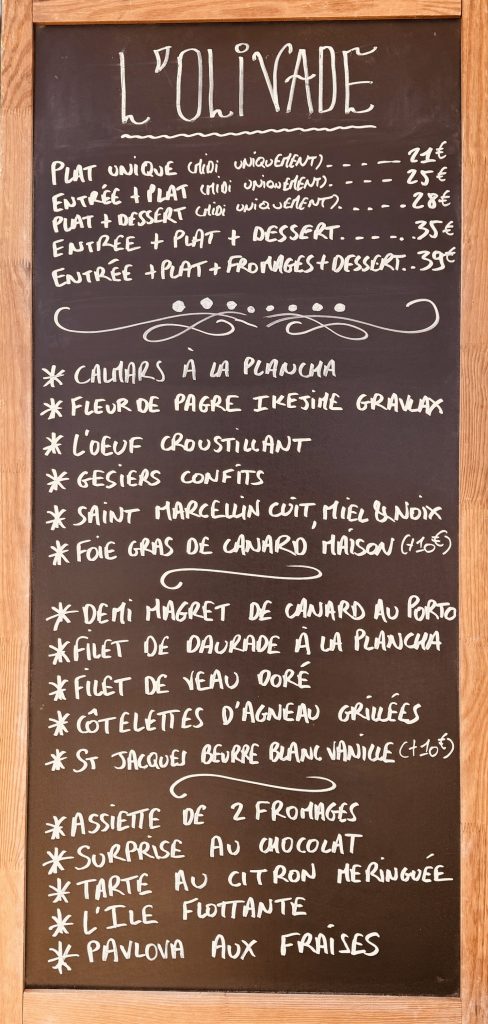 L'OLIVADE
PLAT UNIQUE (MIDI UNIQUEMENT)..---- 21€
ENTRÉE + PLAT (MIDI UNIQUEMENT).---- 25€
PLAT + DESSERT (MIDI UNIQUEMENT).----.. 28€
ENTREE + PLAT + DESSERT....--.. 35€
ENTRÉE + PLAT + FROMAGES + DESSERT.. 39€
* CALMARS À LA PLANCHA
* FLEUR DE PAGRE IKEJIME GRAVLAX
* L'OEUF CROUSTILLANT
* GESIERS CONFITS
* SAINT MARCELLIN CUIT, MIEL & NOIX
* FOIE GRAS DE CANARD MAISON (+10€)
* DEMI MAGRET DE CANARD AU PORTO
* FILET DE DAURADE À LA PLANCHA
* FILET DE VEAU DORÉ
* CÔTELETTES D'AGNEAU GRILLÉES
* ST JACQUES BEURRE BLANC VANILLE (+10€)
* ASSIETTE DE 2 FROMAGES
* SURPRISE AU CHOCOLAT
* TARTE AU CITRON MERINGUÉE
* L'ILE FLOTTANTE
* PAVLOVA AUX FRAISES